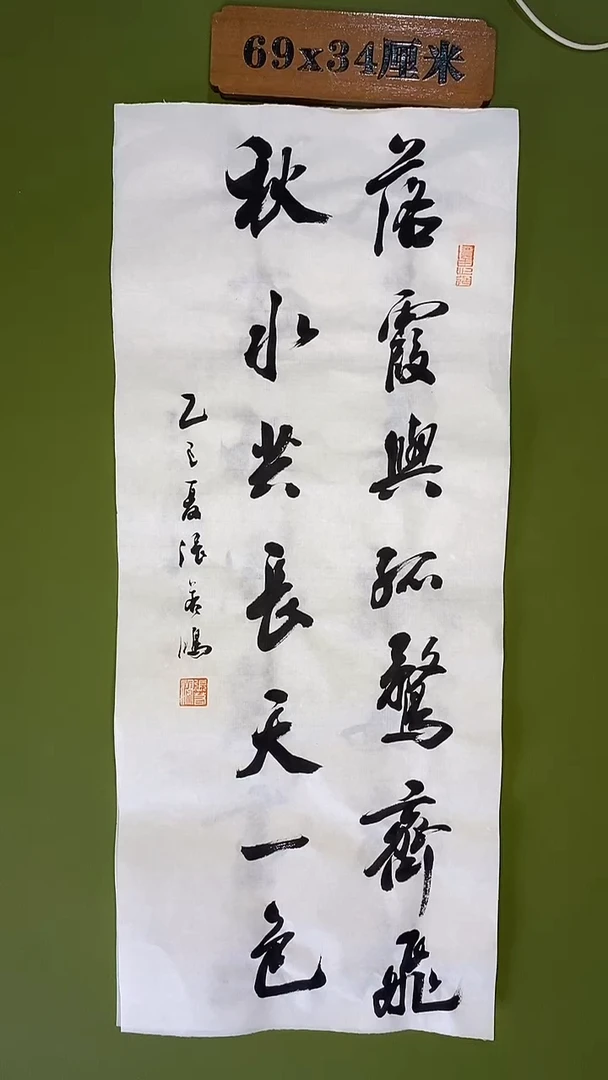 69x34厘米
落霞與孤鶩齊飛
秋水共長天一色
乙巳夏張若鴻